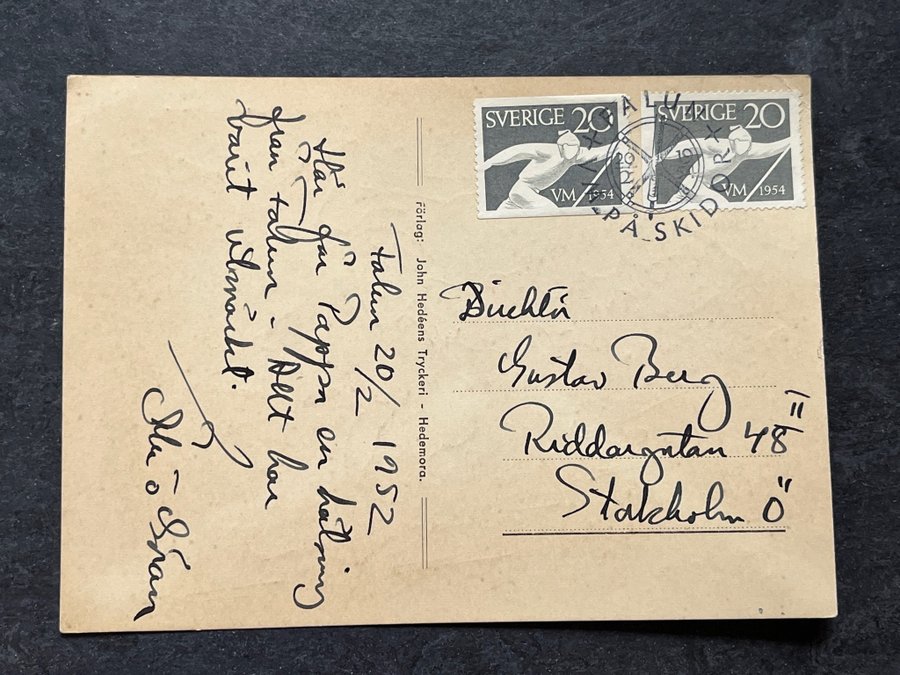 SVERIGE 20
VM 1954
SVERIGE 20
VM 1954
FALUN
PÅ SKIDOR
Förlag: John Hedéens Tryckeri - Hedemora.
Falun 20/2 1952
Här får Pappa en hälsning
från Falun. Allt har
varit utmärkt.
Göran
Direktör
Gustav Berg
Riddargatan 48
Stockholm Ö